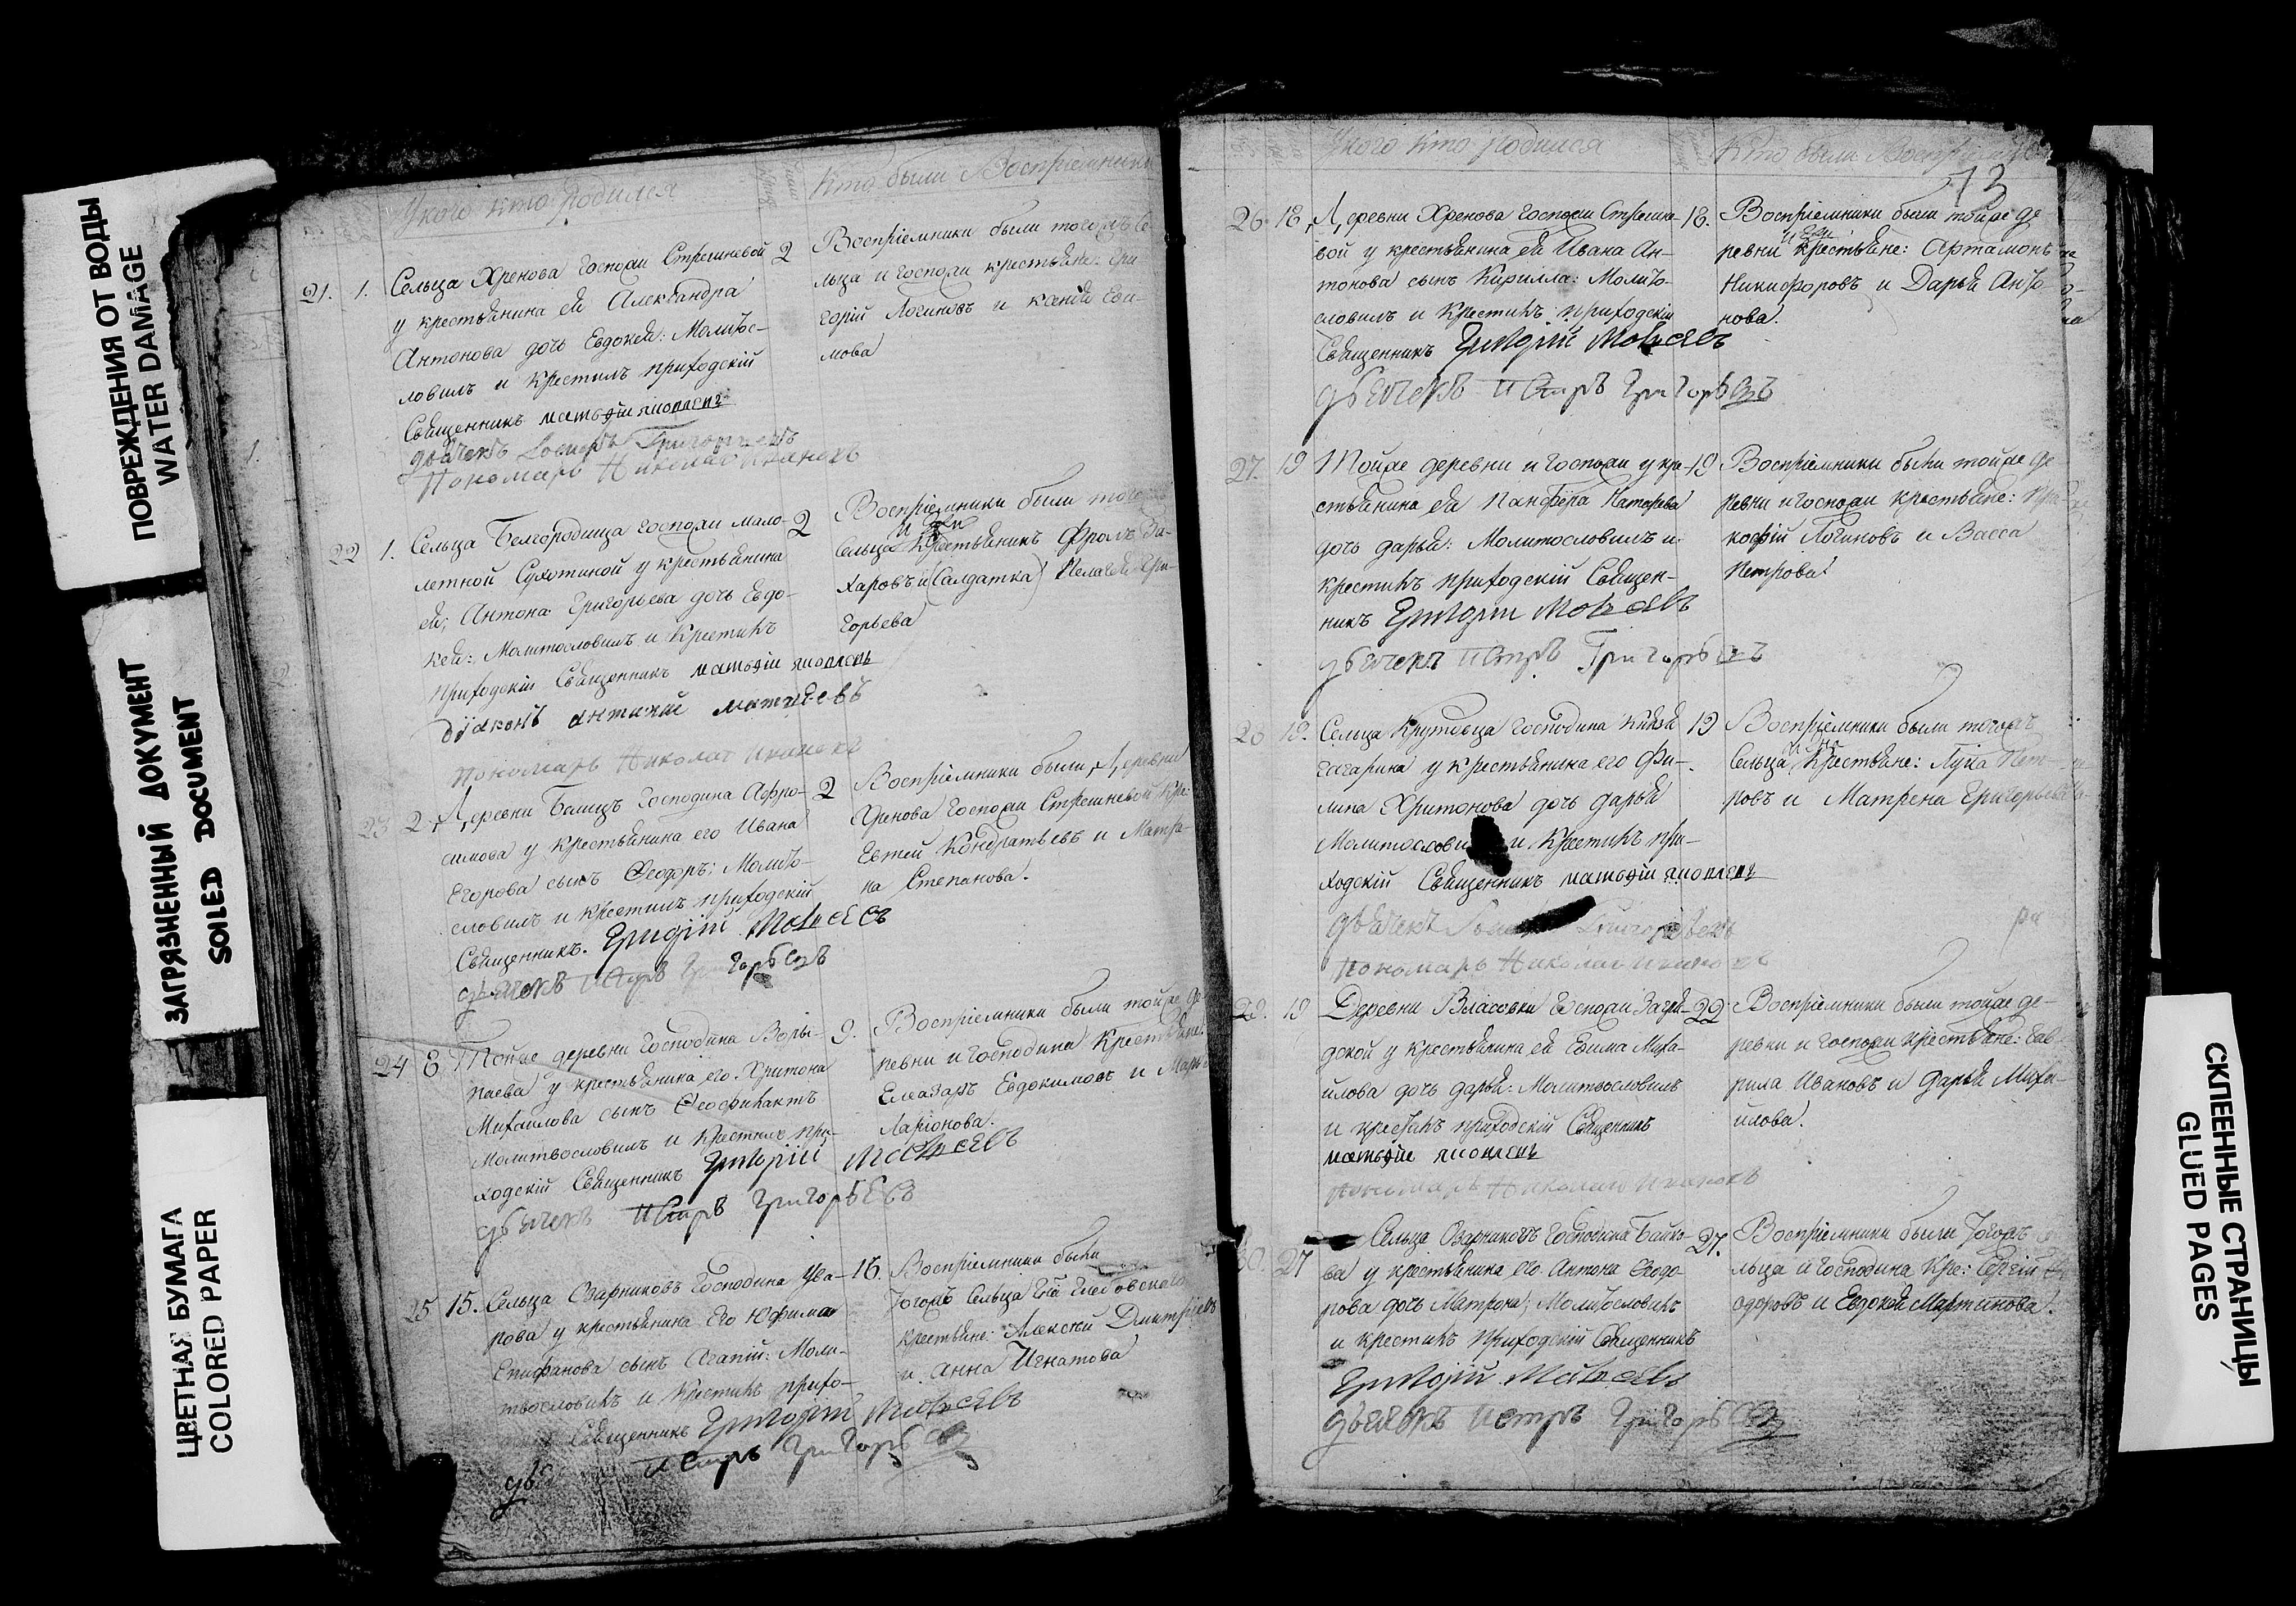 ПОВРЕЖДЕНИЯ ОТ ВОДЫ
WATER DAMAGE
ЗАГРЯЗНЕННЫЙ ДОКУМЕНТ
SOILED DOCUMENT
ЦВЕТНАЯ БУМАГА
COLORED PAPER
У кого кто родился
Кто были Восприемники
21. 1. Сельца Хренова Госпожи Стрешневой 2
у крестьянина ея Александра
Антонова дочь Евдокея: Молитвос-
ловилъ и крестилъ приходскій
Священникъ матфій яковлевъ
дьячекъ Григорьевъ
Пономарь Николай Ивановъ
Восприемники были тогожъ Се-
льца и Госпожи крестьяне: Гри-
горій Логиновъ и Ефи-
мова
22 1. Сельца Белгородища Госпожи мало- 2
летной Сухотиной у крестьянина
ея: Антона Григорьева дочь Евдо-
кея: Молитвословилъ и крестилъ
приходскій Священникъ матфій яковлевъ
діаконъ матфіевъ
пономарь Николай Ивановъ
Восприемники были тогожъ
Сельца и Гжи Крестьянинъ Фролъ За-
харовъ и (Салдатка) Пелагея Гри-
горьева
23 2. Деревни Господина Афро- 2
симова у крестьянина его Ивана
Егорова сынъ Феодоръ: Молитво-
словилъ и крестилъ приходскій
Священникъ. Григорій Моисеевъ
дьячекъ Петръ Григорьевъ
Восприемники были Деревни
Хренова Госпожи Стрешневой Кре:
Евтей Кондратьевъ и Матре-
на Степанова.
24 8. Тойже деревни Господина Воры- 9.
паева у крестьянина его Хритона
Михаилова сынъ Феофилактъ
Молитвословилъ и Крестилъ при-
ходскій Священникъ Григорій Моисеевъ
дьячекъ Петръ Григорьевъ
Восприемники были тойже де-
ревни и Господина Крестьяне:
Елеазаръ Евдокимовъ и Марья
Ларіонова.
25 15. Сельца Озарниковъ Господина Ува- 16.
рова у крестьянина Его Юфима
Епифанова сынъ Агапій: Моли-
твословилъ и Крестилъ прихо-
Священникъ Григорій Моисеевъ
Петръ Григорьевъ
Восприемники были
Тогожъ Сельца Гна Глебовскаго
крестьяне: Алексей Дмитріевъ
и Анна Игнатова
У кого Кто родился
Кто были Восприемники
73
26. 18. Деревни Хренова Госпожи Стрешне- 18.
вой у крестьянина ея Ивана Ан-
тонова сынъ Кирилла: Молитво-
словилъ и Крестилъ приходскій
Священникъ Григорій Моисеевъ
дьячекъ Петръ Григорьевъ
Восприемники были тойже де
ревни и Гжи Крестьяне: Артамонъ
Никифоровъ и Дарья Анто
нова.
27. 19 Тойже деревни и Госпожи у кре- 19
стьянина ея Панфера
дочь дарья: Молитвословилъ и
крестилъ приходскій Священ-
никъ Григорій Моисеевъ
дьячекъ Петръ Григорьевъ
Восприемники были тойже де
ревни и Госпожи крестьяне: Про
кофій Логиновъ и Васса
Петрова.
28 19. Сельца Крутовца Господина Князя 19
Гагарина у крестьянина его Фи-
липа Хритонова дочь дарья
Молитвослови и Крестилъ при-
ходскій Священникъ матфій яковлевъ
дьячекъ Григорьевъ
пономарь Николай Ивановъ
Восприемники были тогожъ
Сельца и Гна Крестьяне: Лука Пет-
ровъ и Матрена Григорьева
29. 19 Деревни Власовки Госпожи Загря- 22
дской у крестьянина ея Ефима Миха-
илова дочь дарья: Молитвословилъ
и крестилъ приходскій Священникъ
матфій яковлевъ
пономарь Николай Ивановъ
Восприемники были тойже де-
ревни и Госпожи крестьяне: Гав
рила Ивановъ и дарья Миха-
илова.
30. 27 Сельца Озарниковъ Господина Байко- 27.
ва у крестьянина его Антона Феодо-
рова дочь Матрона: Молитвословилъ
и крестилъ Приходскій Священникъ
Григорій Моисеевъ
дьячекъ Петръ Григорьевъ
Восприемники были Тогожъ се
льца и Господина Кре: Сергій Фе
одоровъ и Евдокея Мартинова.
СКЛЕЕННЫЕ СТРАНИЦЫ
GLUED PAGES